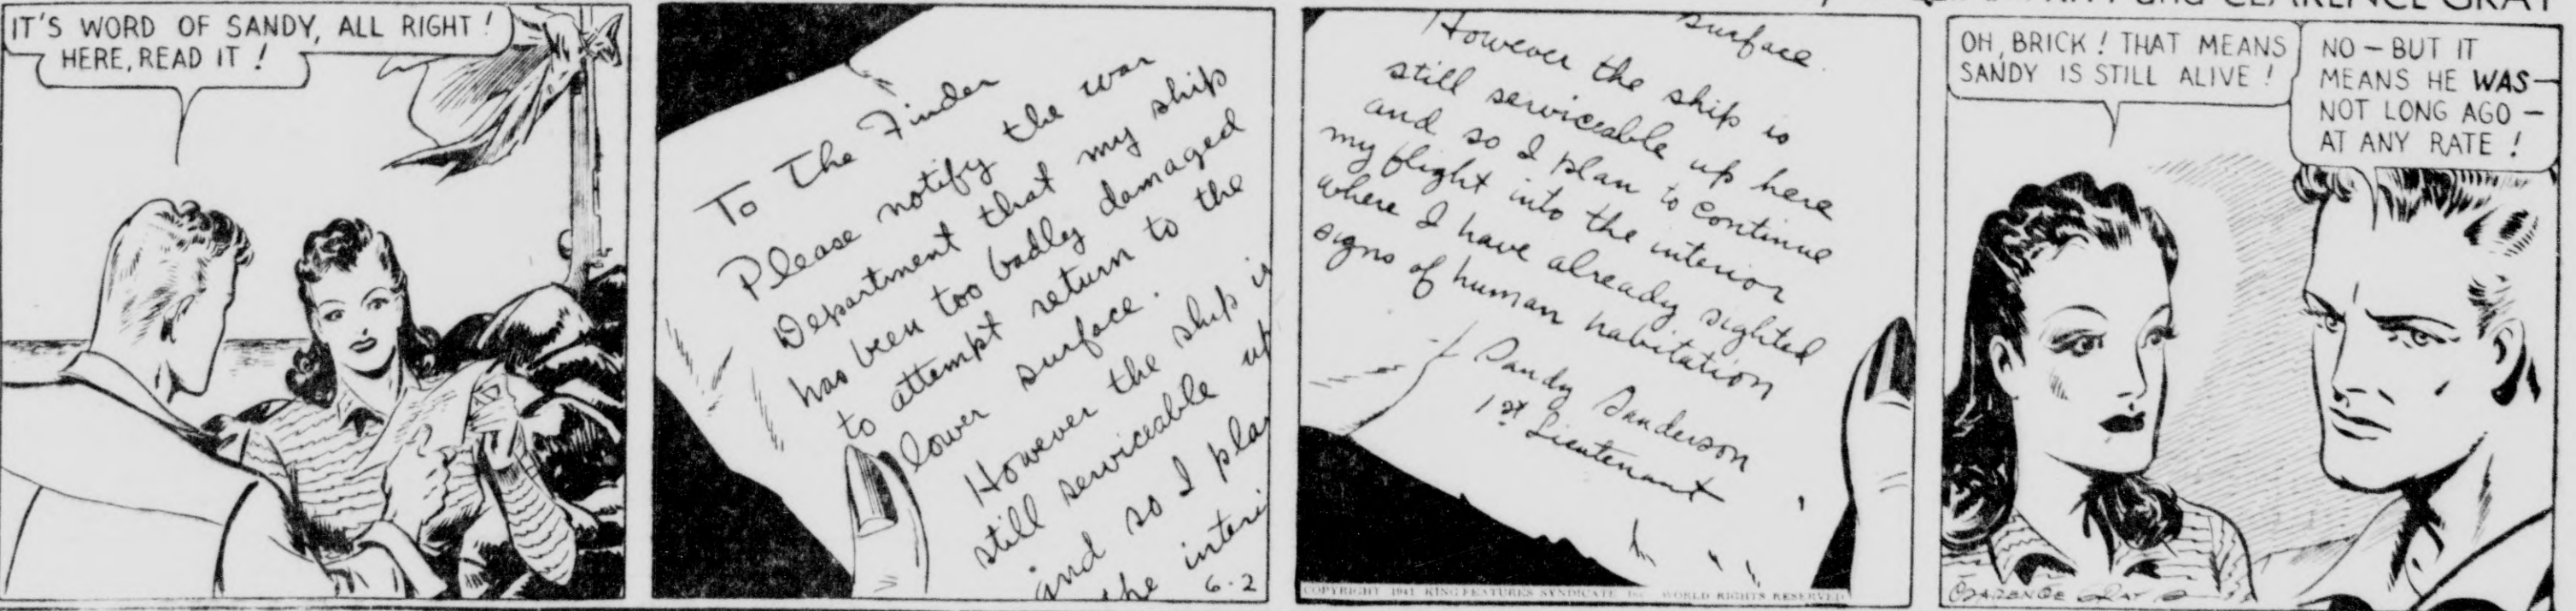 and CLARENCE GRAY
IT'S WORD OF SANDY, ALL RIGHT!
HERE, READ IT!
To The Finder
Please notify the war
Department that my ship
has been too badly damaged
to attempt return to the
lower surface.
However the ship is
still serviceable up
and so I pla
the interi
6-2
surface.
However the ship is
still serviceable up here
and so I plan to continue
my flight into the interior
where I have already sighted
signs of human habitation
Sandy Sanderson
1st Lieutenant
COPYRIGHT 1941 KING FEATURES SYNDICATE Inc. WORLD RIGHTS RESERVED
OH, BRICK! THAT MEANS
SANDY IS STILL ALIVE!
NO — BUT IT
MEANS HE WAS —
NOT LONG AGO —
AT ANY RATE!
CLARENCE GRAY